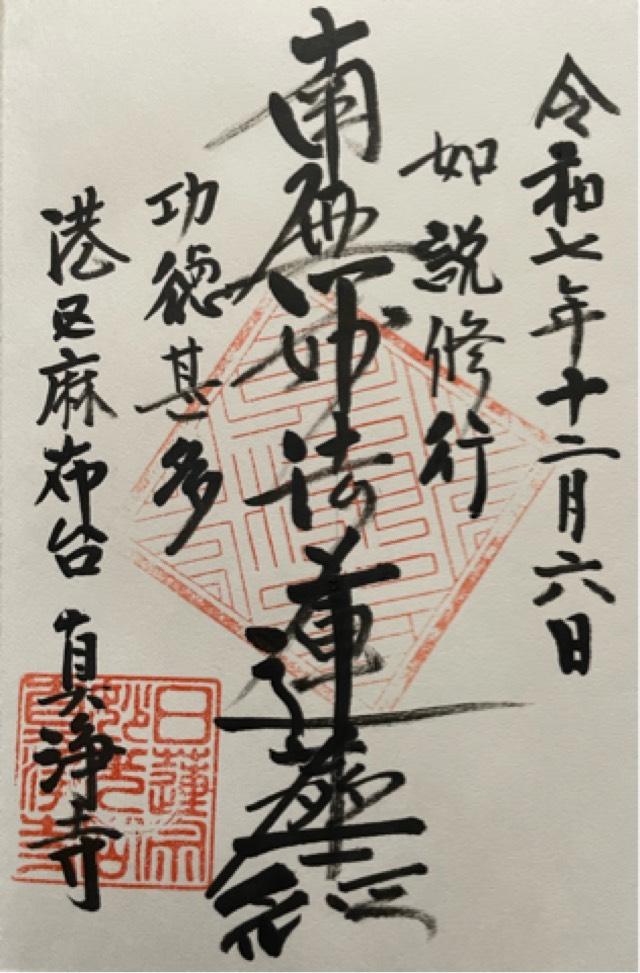 令和七年十二月六日
如説修行
南無妙法蓮華経
功徳甚多
港区麻布台 真浄寺
日蓮宗
真浄寺